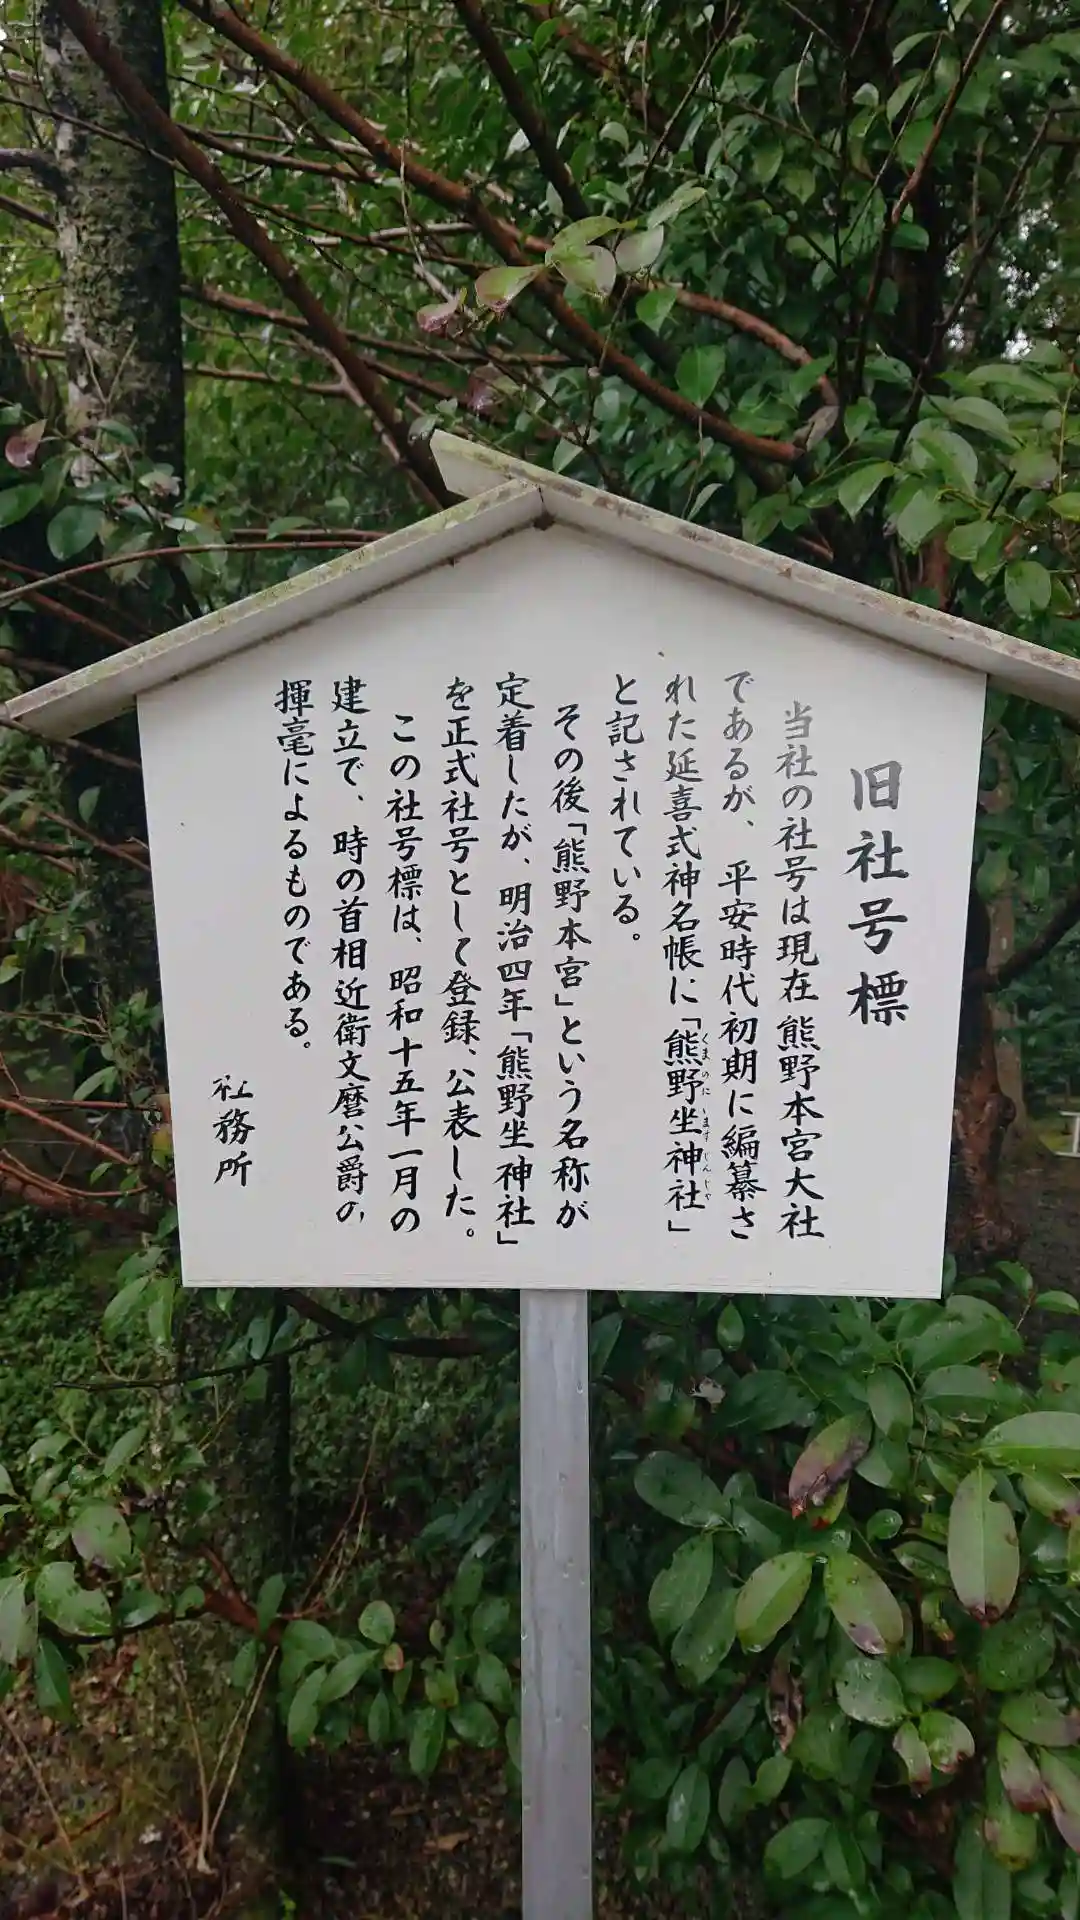 旧社号標
当社の社号は現在熊野本宮大社
であるが、平安時代初期に編纂さ
れた延喜式神名帳に「熊野坐神社」
くまのにいますじんじゃ
と記されている。
その後「熊野本宮」という名称が
定着したが、明治四年「熊野坐神社」
を正式社号として登録、公表した。
この社号標は、昭和十五年一月の
建立で、時の首相近衛文麿公爵の
揮毫によるものである。
社務所